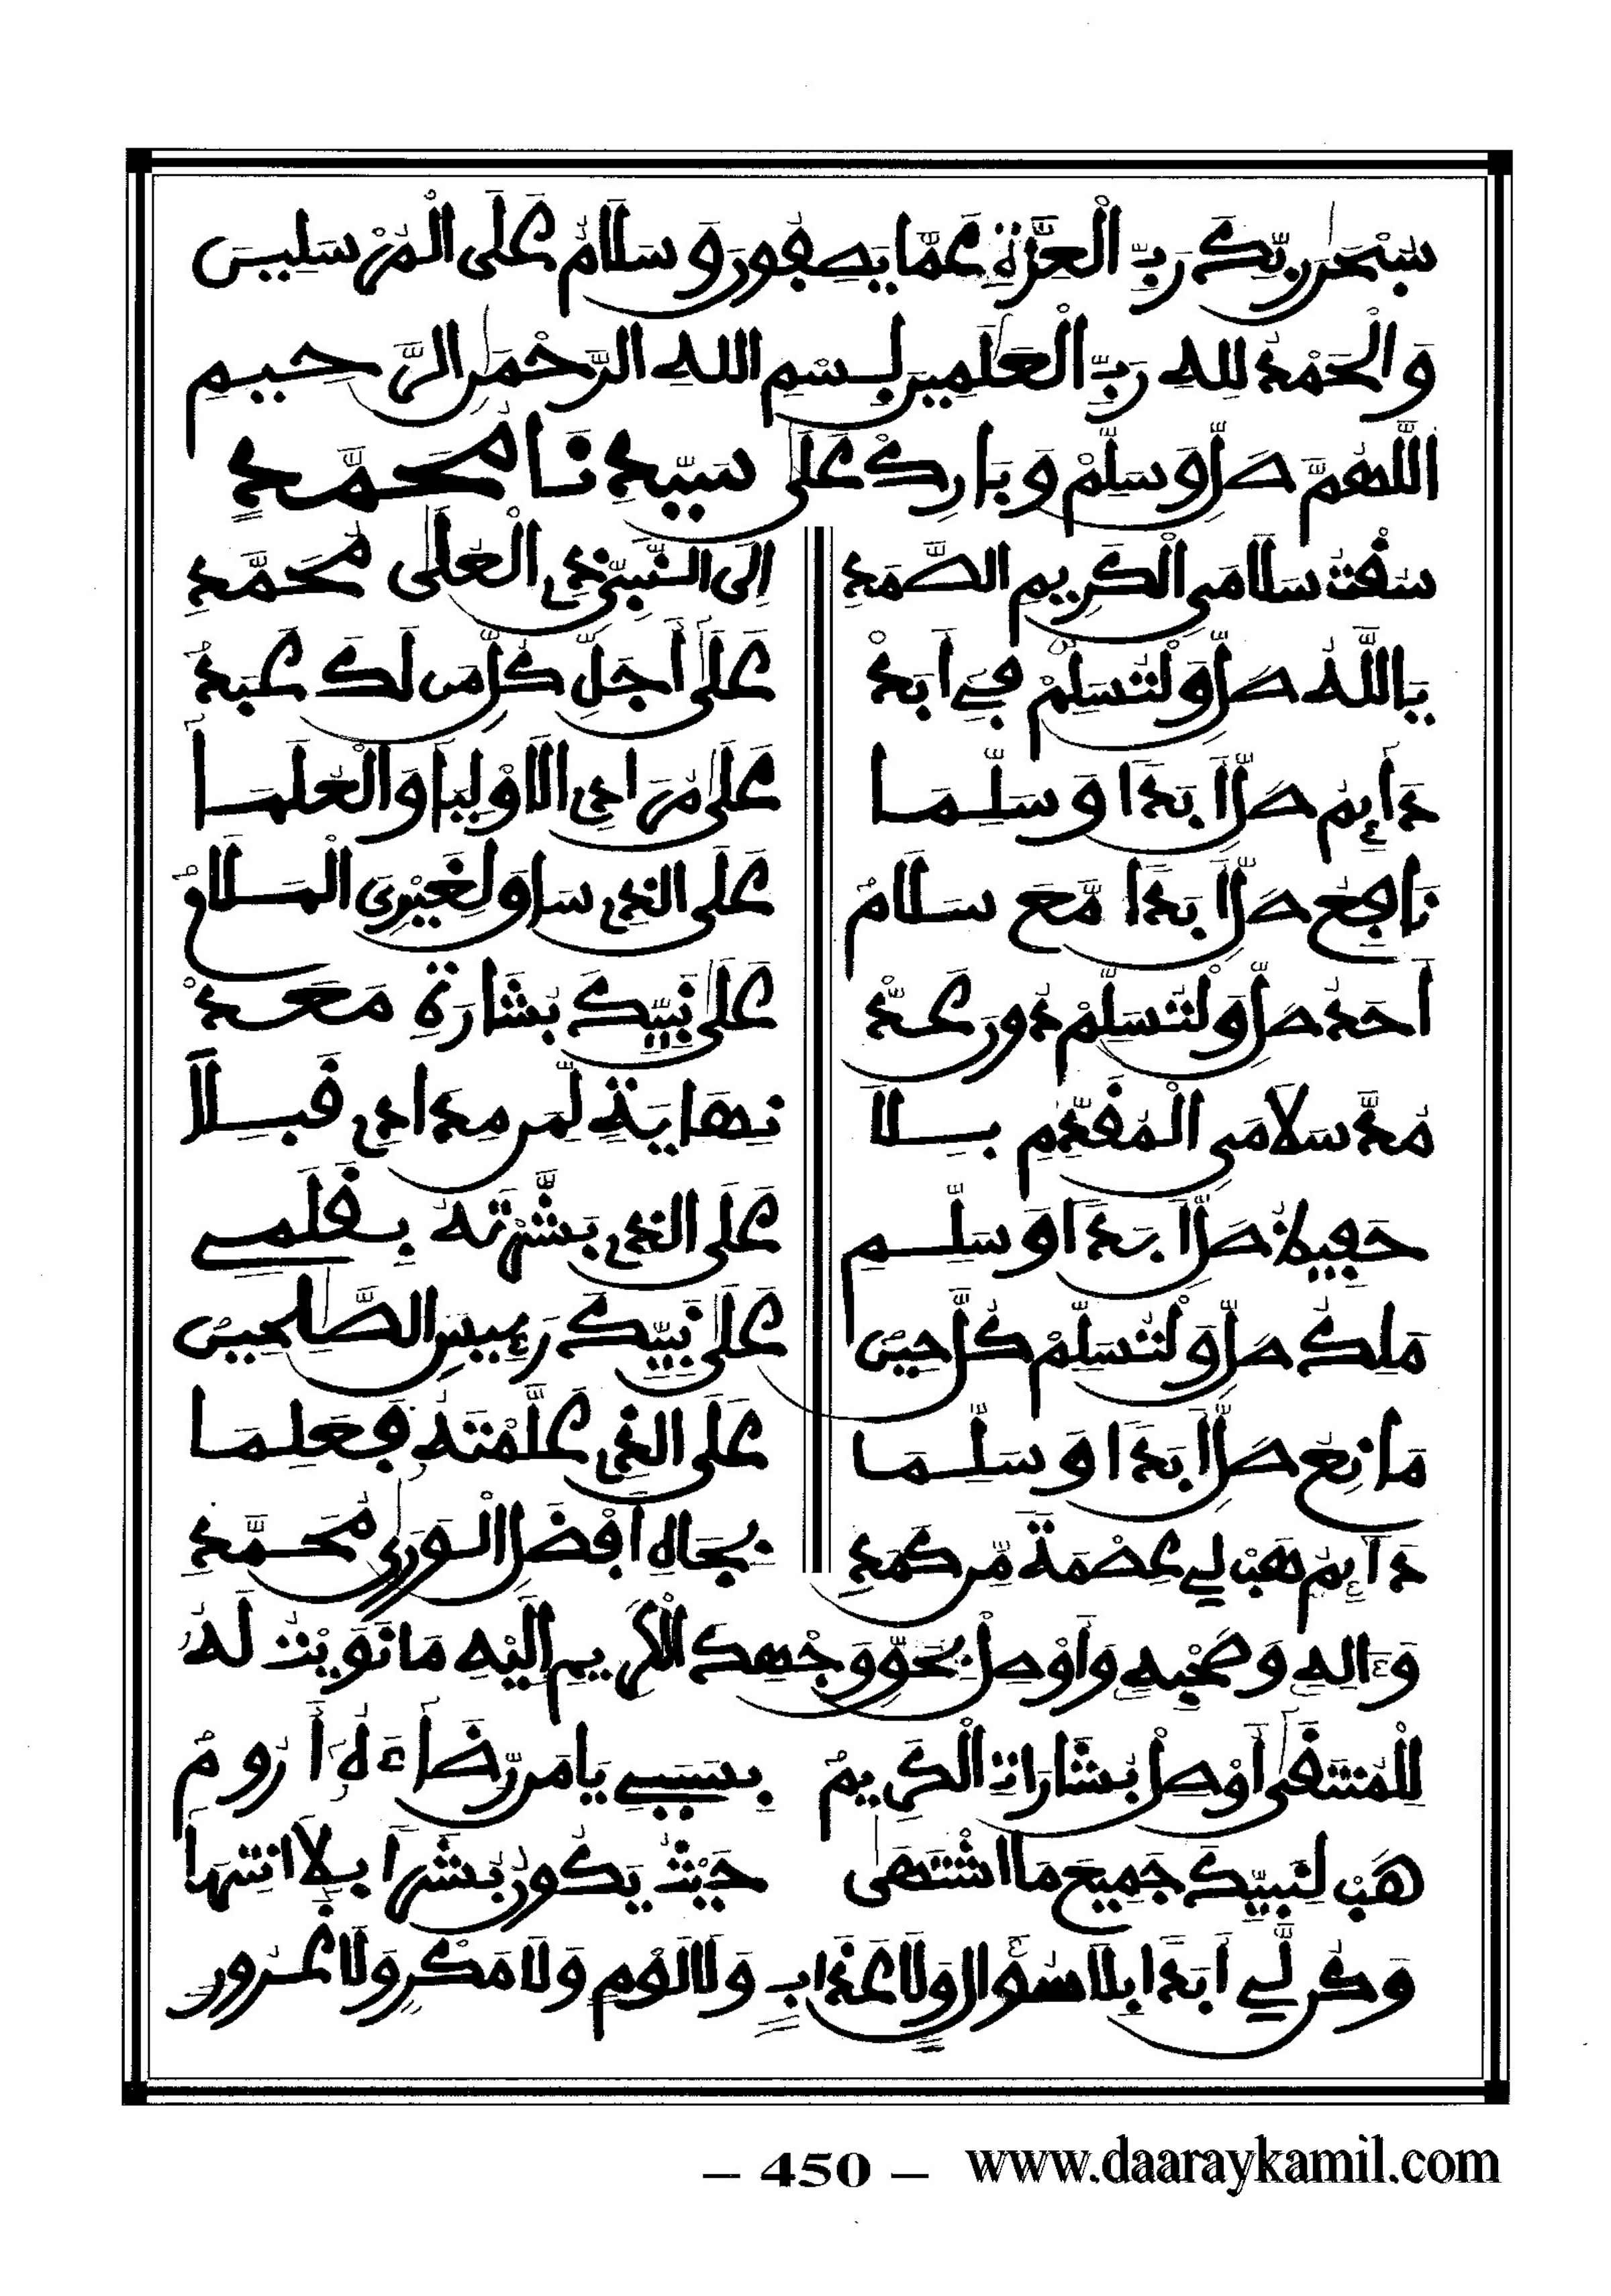 سُبْحَٰنَ رَبِّكَ رَبِّ الْعِزَّةِ عَمَّا يَصِفُونَ وَسَلَامٌ عَلَى الْمُرْسَلِينَ
وَالْحَمْدُ لِلهِ رَبِّ الْعَٰلَمِينَ بِسْمِ اللهِ الرَّحْمَٰنِ الرَّحِيمِ
اللَّهُمَّ صَلِّ وَسَلِّمْ وَبَارِكْ عَلَى سَيِّدِنَا مُحَمَّدٍ
سُقْتُ سَلَامَيِ الْكَرِيمِ الصَّمَدِ إِلَى النَّبِيِّ ذِي الْعُلَى مُحَمَّدِ
يَا اللَّهُ صَلِّ وَلْتُسَلِّمْ فِي أَبَدْ عَلَى أَجَلِّ كُلِّ مَن لَكَ عَبَدْ
دَائِمُ صَلِّ أَبَدًا وَسَلِّمَا عَلَى مُرَادِي الْأَوْلِيَا وَالْعُلَمَا
نَافِعُ صَلِّ أَبَدًا مَّعَ سَلَامْ عَلَى الَّذِي سَاقَ لِغَيْرِيَ الْمَلَامْ
أَحَدُ صَلِّ وَلْتُسَلِّمْ دُونَ عَدْ عَلَى نَبِيِّكَ بَشَارَةِ مَعَدْ
مُدَّ سَلَامَيِ الْمُقَدِّمِ بِلَا نِهَايَةٍ لِّمَن مِدَادِي قَبِلَا
حَفِيظُ صَلِّ أَبَدًا وَسَلِّمِ عَلَى الَّذِي بَشَّرْتَهُ بِقَلَمِي
مَلِكُ صَلِّ وَلْتُسَلِّمْ كُلَّ حِينْ عَلَى نَبِيِّكَ رَئِيسِ الصَّٰلِحِينْ
مَانِعُ صَلِّ أَبَدًا وَسَلِّمَا عَلَى الَّذِي عَلَّمْتَهُ فَعَلِمَا
دَائِمُ هَبْ لِي عِصْمَةً مِّن كَمَدِ بِجَاهِ أَفْضَلِ الْوَرَى مُحَمَّدِ
وَءَالِهِ وَصَحْبِهِ وَأَوْصِلْ بِحَقِّ وَجْهِكَ الْكَرِيمِ إِلَيْهِ مَا نَوَيْتُ لَهُ
لِلْمُنتَقَى أَوْصِلْ بَشَارَاتِ الْكَرِيمْ بِسَبَبِي يَا مَن رِّضَاءَهُ أَرُومْ
هَبْ لِنَبِيِّكَ جَمِيعَ مَا اشْتَهَى حَيْثُ يَكُونُ بُشَرًا بِلَا انْتِهَا
وَكُن لِّي أَبَدًا بِلَا سُؤَالٍ وَلَا عَذَابٍ وَلَا لَوْمٍ وَلَا مَكْرٍ وَلَا غُرُورٍ
– 450 – www.daaraykamil.com